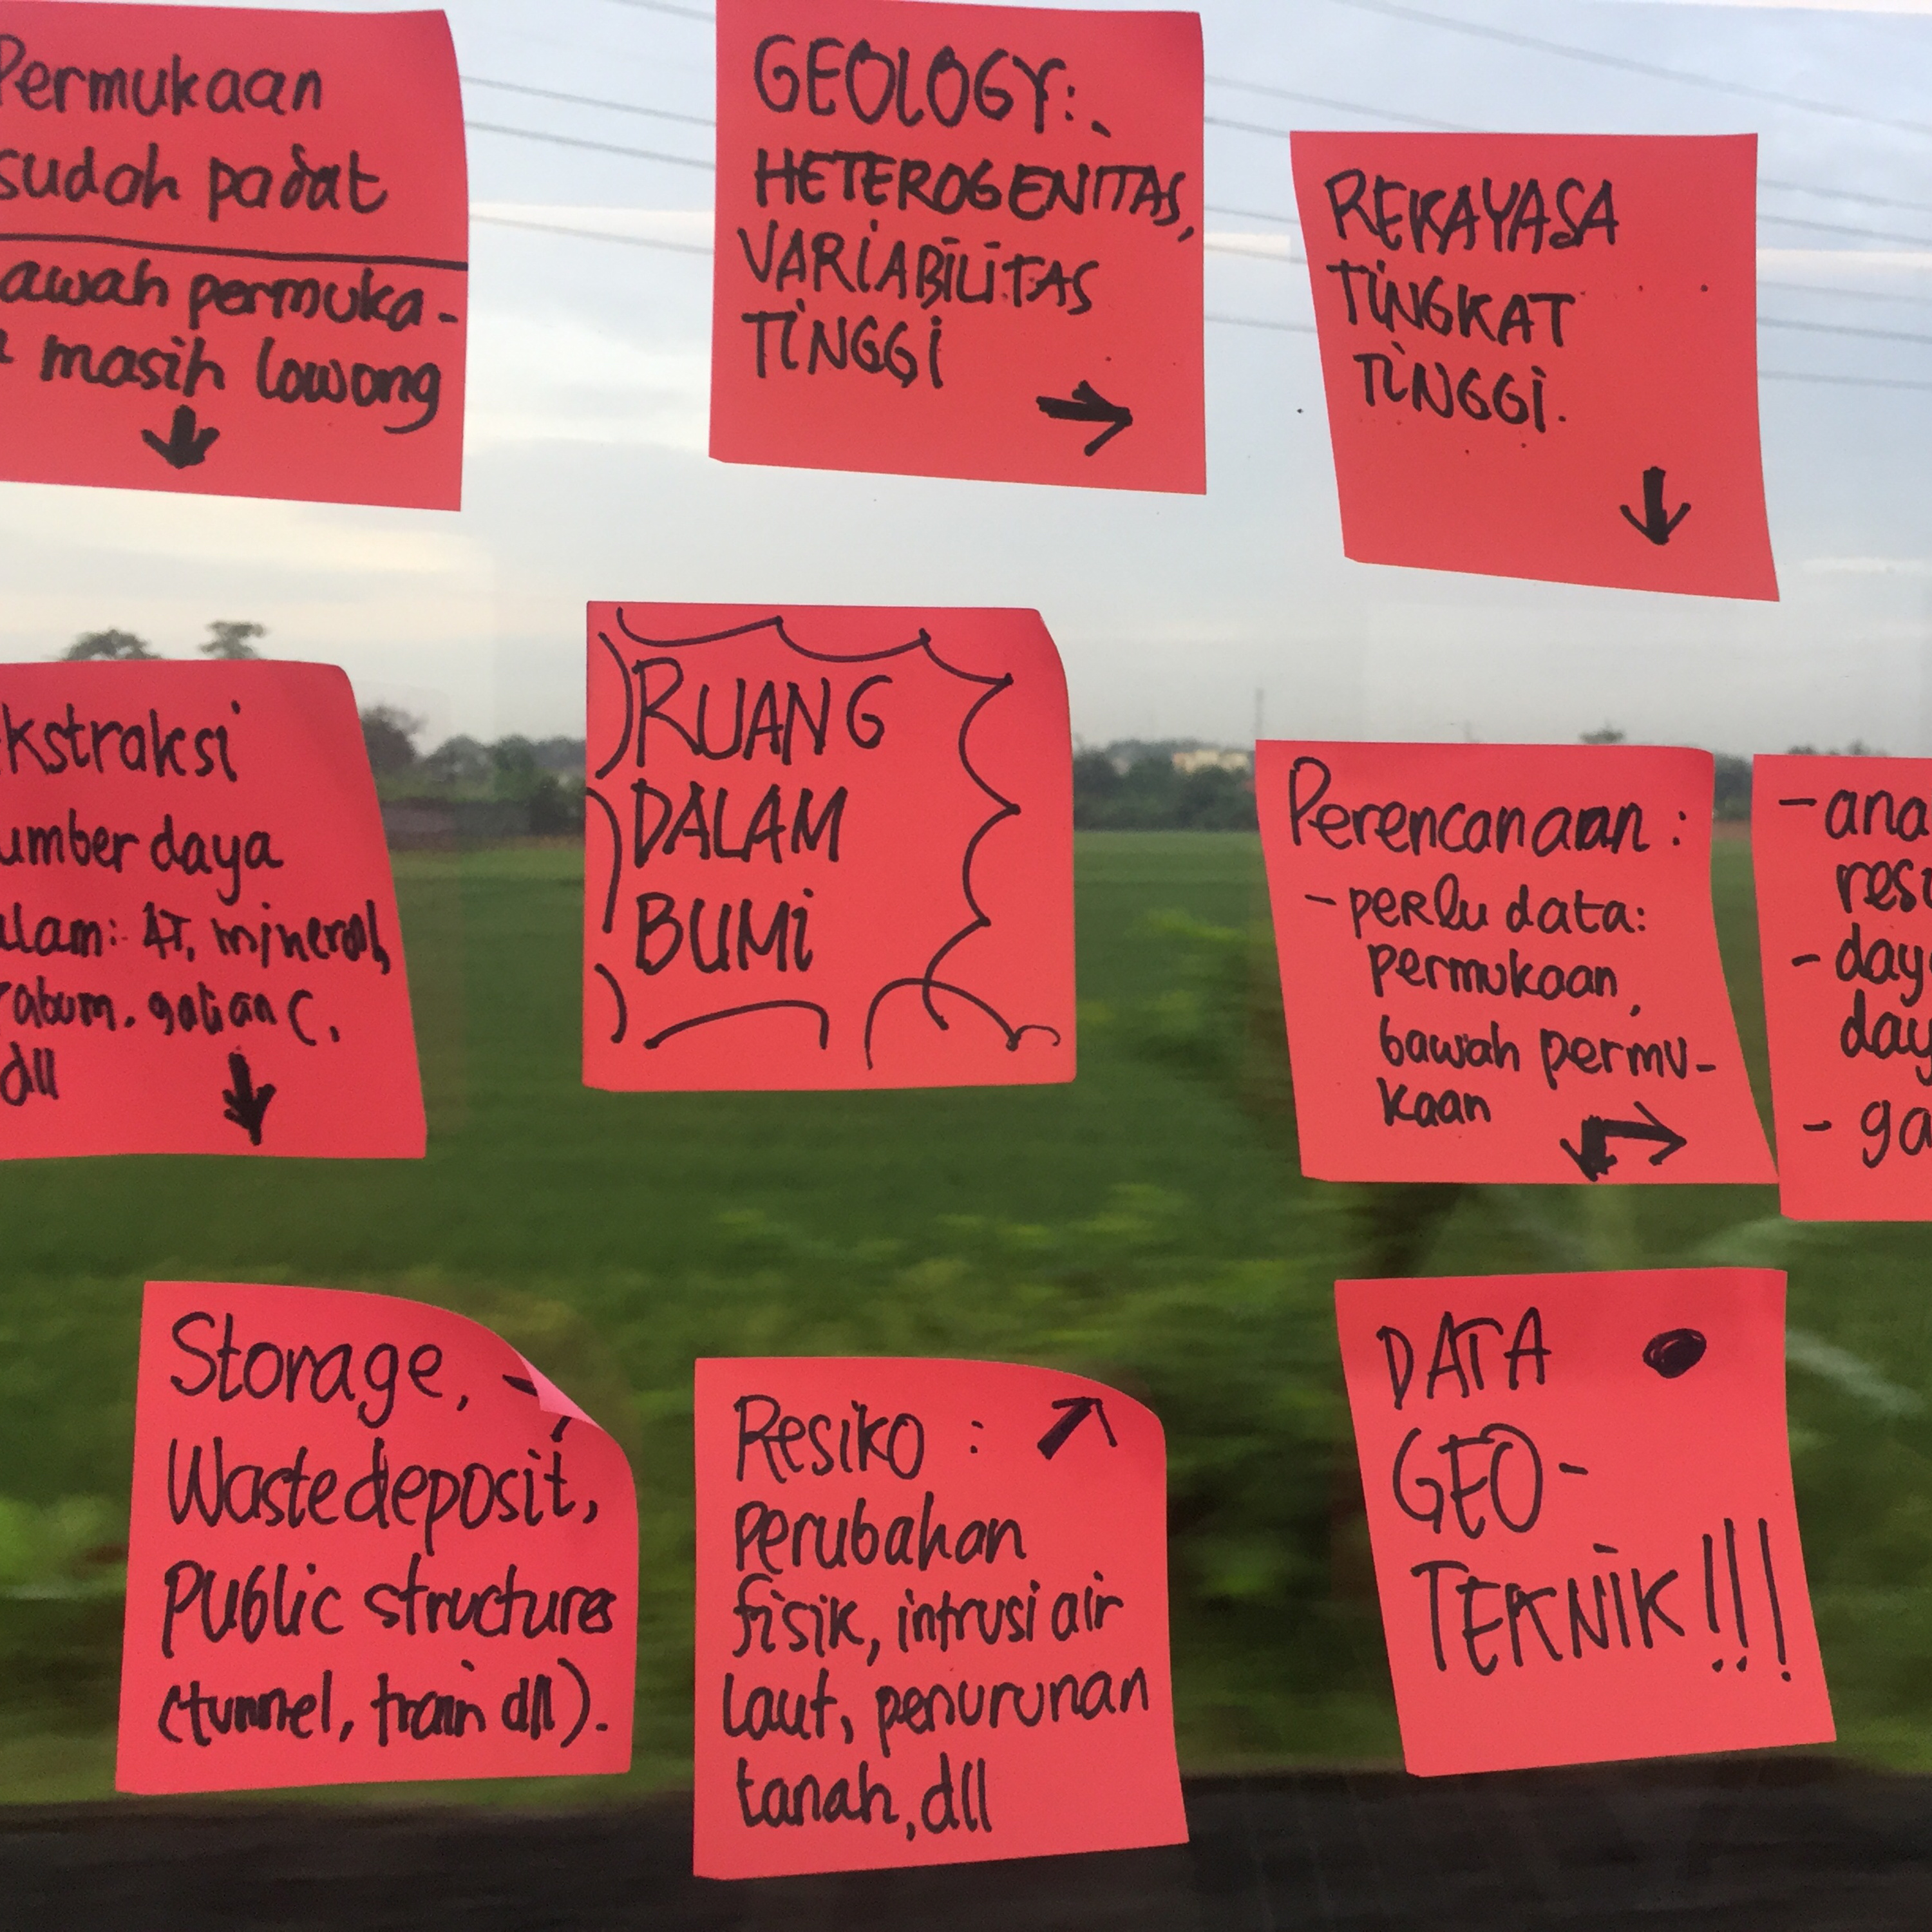 Permukaan
sudah padat
awah permuka-
masih lowong
GEOLOGY:
HETEROGENITAS,
VARIABILITAS
TINGGI
→
REKAYASA
TINGKAT
TINGGI.
kstraksi
umber daya
alam: AT, mineral,
rabum. galian C,
dll
RUANG
DALAM
BUMI
Perencanaan:
- perlu data:
permukaan,
bawah permu-
kaan
- ana
res
- day
day
- ga
Storage,
Waste deposit,
Public structures
(tunnel, train dll).
Resiko :
perubahan
fisik, intrusi air
laut, penurunan
tanah, dll
DATA
GEO-
TEKNIK!!!